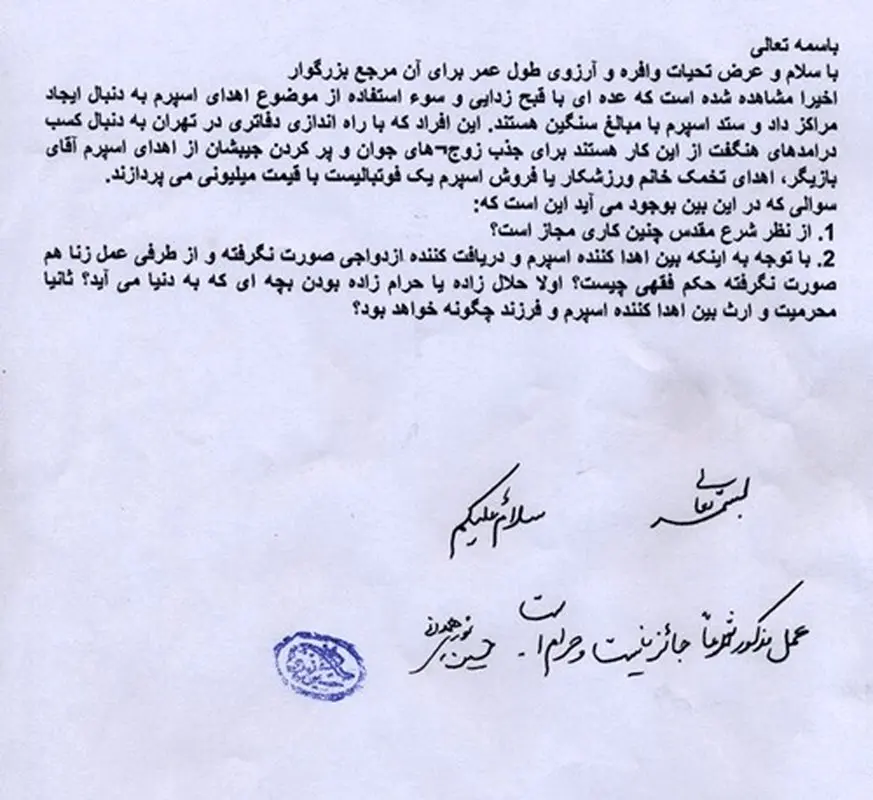 باسمه تعالی
با سلام و عرض تحیات وافره و آرزوی طول عمر برای آن مرجع بزرگوار
اخیرا مشاهده شده است که عده ای با قبح زدایی و سوء استفاده از موضوع اهدای اسپرم به دنبال ایجاد
مراکز داد و ستد اسپرم با مبالغ سنگین هستند. این افراد که با راه اندازی دفاتری در تهران به دنبال کسب
درامدهای هنگفت از این کار هستند برای جذب زوج¬های جوان و پر کردن جیبشان از اهدای اسپرم آقای
بازیگر، اهدای تخمک خانم ورزشکار یا فروش اسپرم یک فوتبالیست با قیمت میلیونی می پردازند.
سوالی که در این بین بوجود می آید این است که:
1. از نظر شرع مقدس چنین کاری مجاز است؟
2. با توجه به اینکه بین اهدا کننده اسپرم و دریافت کننده ازدواجی صورت نگرفته و از طرفی عمل زنا هم
صورت نگرفته حکم فقهی چیست؟ اولا حلال زاده یا حرام زاده بودن بچه ای که به دنیا می آید؟ ثانیا
محرمیت و ارث بین اهدا کننده اسپرم و فرزند چگونه خواهد بود؟
بسمه تعالی
سلام علیکم
عمل مذکور شرعاً جائز نیست و حرام است
حسین نوری همدانی